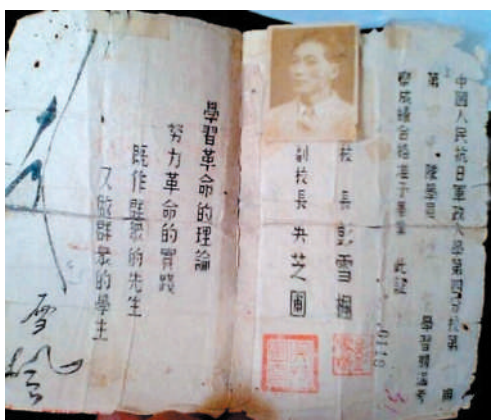 中國人民抗日軍政大學第四分校第 期
第 隊學員 學習期滿考
察成績合格准予畢業 此証
校 長 彭雪楓
副校長 吳芝圃
學習革命的理論
努力革命的實踐
既作群眾的先生
又做群眾的學生
雪楓